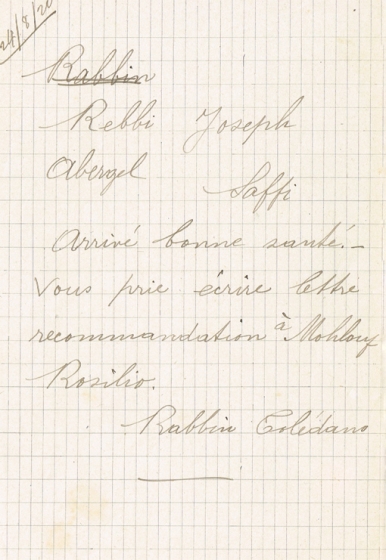 24/8/20
Rabbin
Rebbi Joseph
Abergel
Saffi
Arrivé bonne santé.–
Vous prie écrire lettre
recommandation à Mohlouf
Rosilio.
Rabbin Tolédano